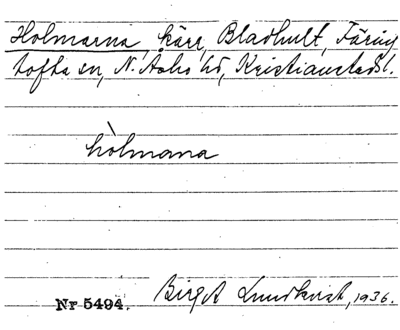 Holmarna kärr, Bladhult, Färing
tofta sn, N. Åsbo hd, Kristianstads l.
hòlmana
Birgit Lundkvist, 1936.
Nr 5494.